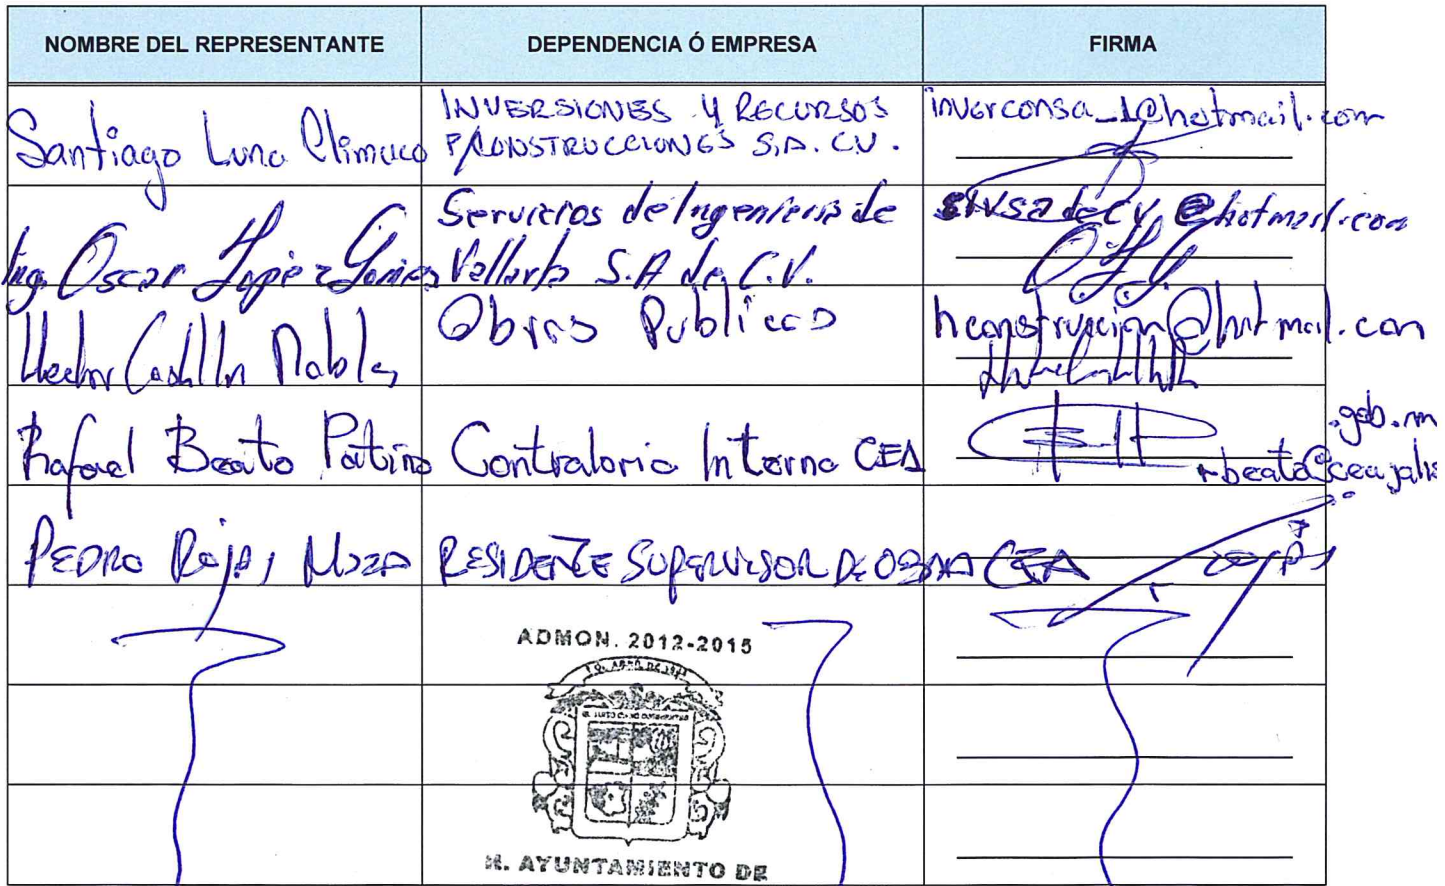 NOMBRE DEL REPRESENTANTE DEPENDENCIA Ó EMPRESA FIRMA
Santiago Luna Climaco INVERSIONES Y RECURSOS P/CONSTRUCCIONES S.A. C.V. inverconsa_1@hotmail.com
Ing. Oscar López Gomez Servicios de Ingenieria de Vallarta S.A de C.V. sivsadecv@hotmail.com
OLG
Hector Castillo Robles Obras Publicas hconstruccion@hotmail.com
Rafael Beato Patiño Contraloria Interna CEA .gob.m
rbeato@ceajalis
PEDRO Rojas Meza RESIDENTE SUPERVISOR DE OBRA CEA
ADMON. 2012-2015
H. AYUNTAMIENTO DE